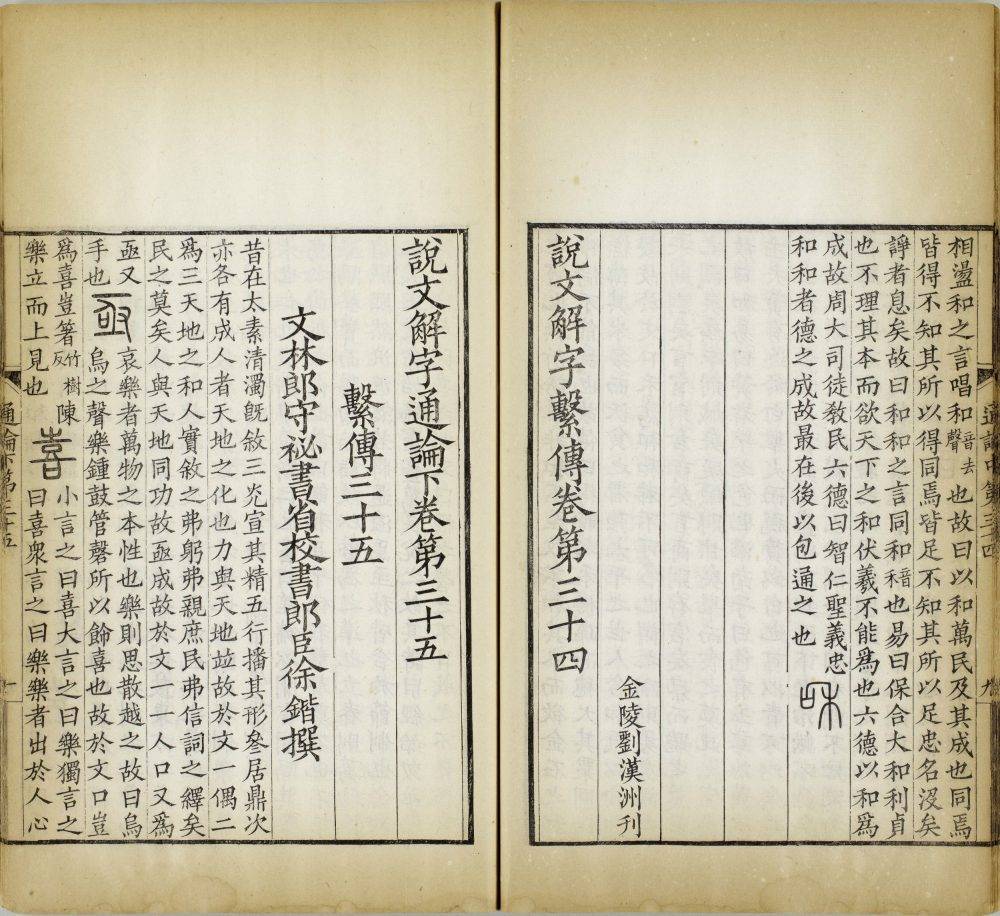 相盪和之言唱和音去聲也故曰以和萬民及其成也同焉
皆得不知其所以得同焉皆足不知其所以足忠名沒矣
諍者息矣故曰和和之言同和禾音也易曰保合大和利貞
也不理其本而欲天下之和伏羲不能為也六德以和為
成故周大司徒敎民六德曰智仁聖義忠和
和和者德之成故最在後以包通之也
說文解字繫傳卷第三十四
金陵劉漢洲刊
通論中第三十四
說文解字通論下卷第三十五
繫傳三十五
文林郎守祕書省校書郎臣徐鍇撰
昔在太素清濁旣敘三光宣其精五行播其形參居鼎次
亦各有成人者天地之化也力與天地竝故於文一偶二
為三天地之和人實敘之弗躬弗親庶民弗信詞之繹矣
民之莫矣人與天地同功故亟成故於文一人口又為
亟又手也亟哀樂者萬物之本性也樂則思散越之故曰烏
烏之聲樂鍾鼓管磬所以飾喜也故於文口豈
為喜豈箸竹樹反陳喜小言之曰喜大言之曰樂獨言之
樂立而上見也曰喜衆言之曰樂樂者出於人心
通論下第三十五
一